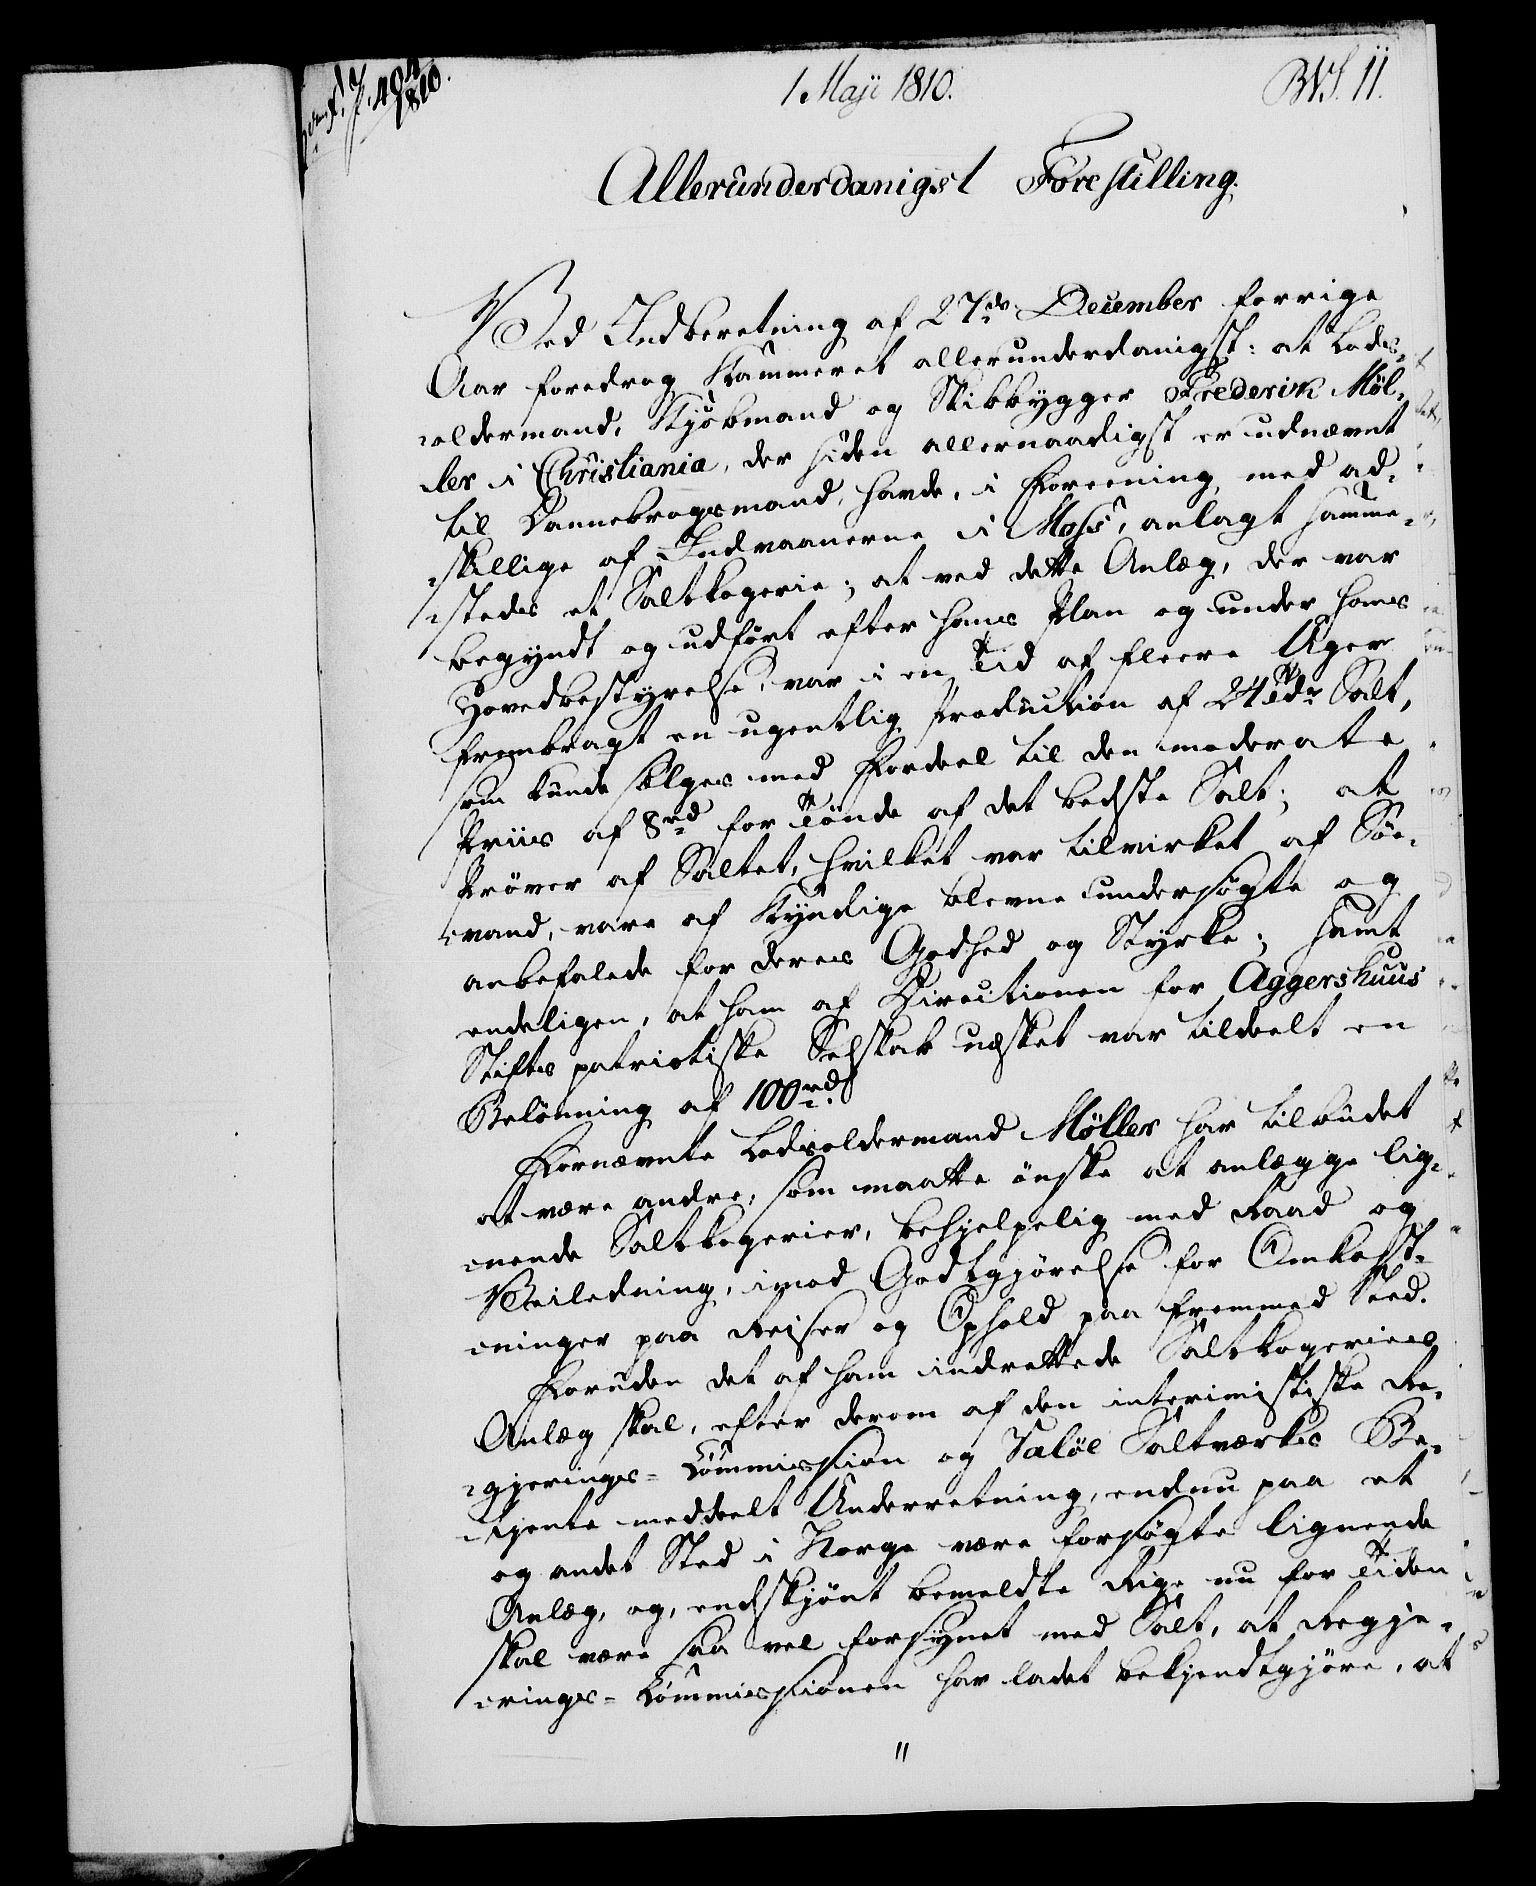 1 Maji 1810.
404
1810.
Allerunderdanigst Forestilling.
Ved Indberetning af 27de December forrige
Aar foredrog Kammeret allerunderdanigst: at Lods-
-oldermand, Kjöbmand og Skibbygger Frederik Möl-
-ler i Christiania, der siden allernaadigst er udnævnt
til Dannebrogsmand, havde, i Foreening med ad-
-skillige af Indvaanerne i Moss, anlagt samme-
-steds et Saltkogerie; at ved dette Anlæg, der var
begyndt og udfört efter hans Plan og under hans
Hovedbestyrelse, var i en Tid af fleere Uger
frembragt en ugentlig Production af 24 Tdr Salt,
som kunde sælges med Fordeel til den moderate
Priis af 8rd for Tönde af det bedste Salt; at
Pröver af Saltet, hvilket var tilvirket af Söe-
-vand, vare af Kyndige blevne undersögte og
anbefalede for deres Godhed og Styrke; samt
endeligen, at ham af Directionen for Aggershuus
Stifts patriotiske Selskab var tildeelt en
Belönning af 100rd.
Fornævnte Lodsoldermand Möller har tilbudet
at være andre, som maatte önske at anlægge lig-
-nende Saltkogerier, behjelpelig med Raad og
Veiledning, imod Godtgjörelse for Omkost-
-ninger paa Reiser og Ophold paa fremmed Sted.
Foruden det af ham indrettede Saltkogeries
Anlæg skal, efter derom af den interimistiske Re-
-gjerings-Commission og Valöe Saltværks Be-
-tjente meddeelt Underretning, endnu paa et
og andet Sted i Norge være forsögte lignende
Anlæg, og, endskjönt bemeldte Rige nu for Tiden
skal være saa vel forsynet med Salt, at Regje-
-rings-Commissionen har ladet bekjendtgjöre, at
"